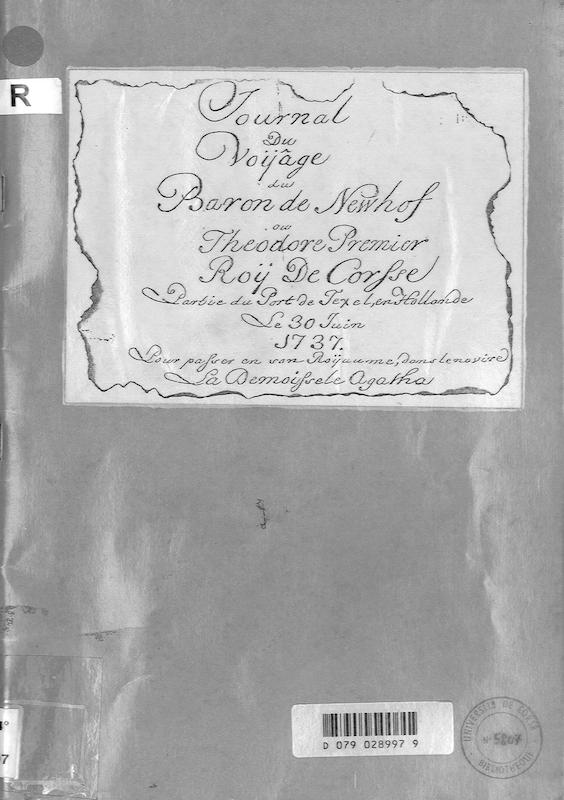 R
Journal
Du
Voijâge
du
Baron de Newhof
ou
Theodore Premier
Roij De Corsse
Partie du Port de Texel, en Hollande
Le 30 Juin
1737.
Pour passer en son Roijaume, dans le navire
La Demoissele Agatha
D 079 028997 9
UNIVERSITÉ DE CORTE
N° 5807
BIBLIOTHÈQUE
7